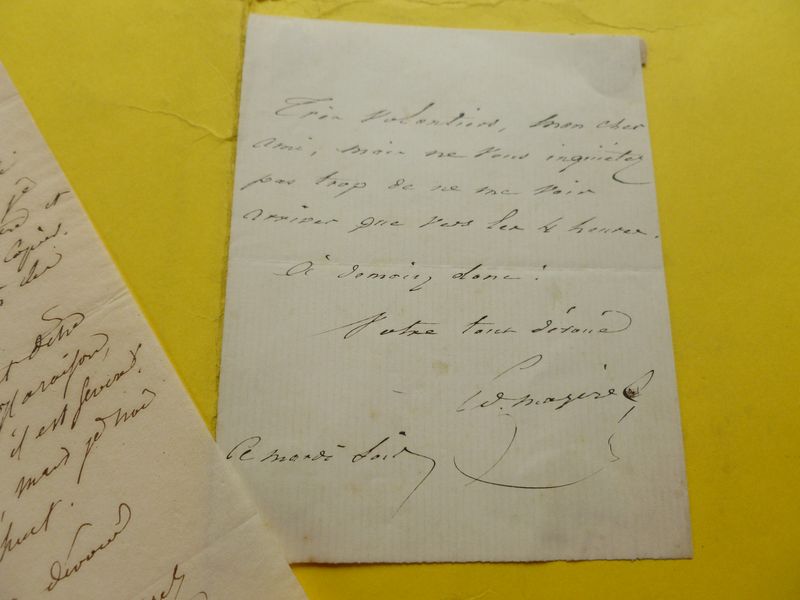 Très volontiers, mon cher
ami, mais ne vous inquiétez
pas trop de ne me voir
arriver que vers les 4 heures.
À demain donc !
Votre tout dévoué
Ed.
Ce mardi soir
je
et
copies
est
il est
mais je
dévoué